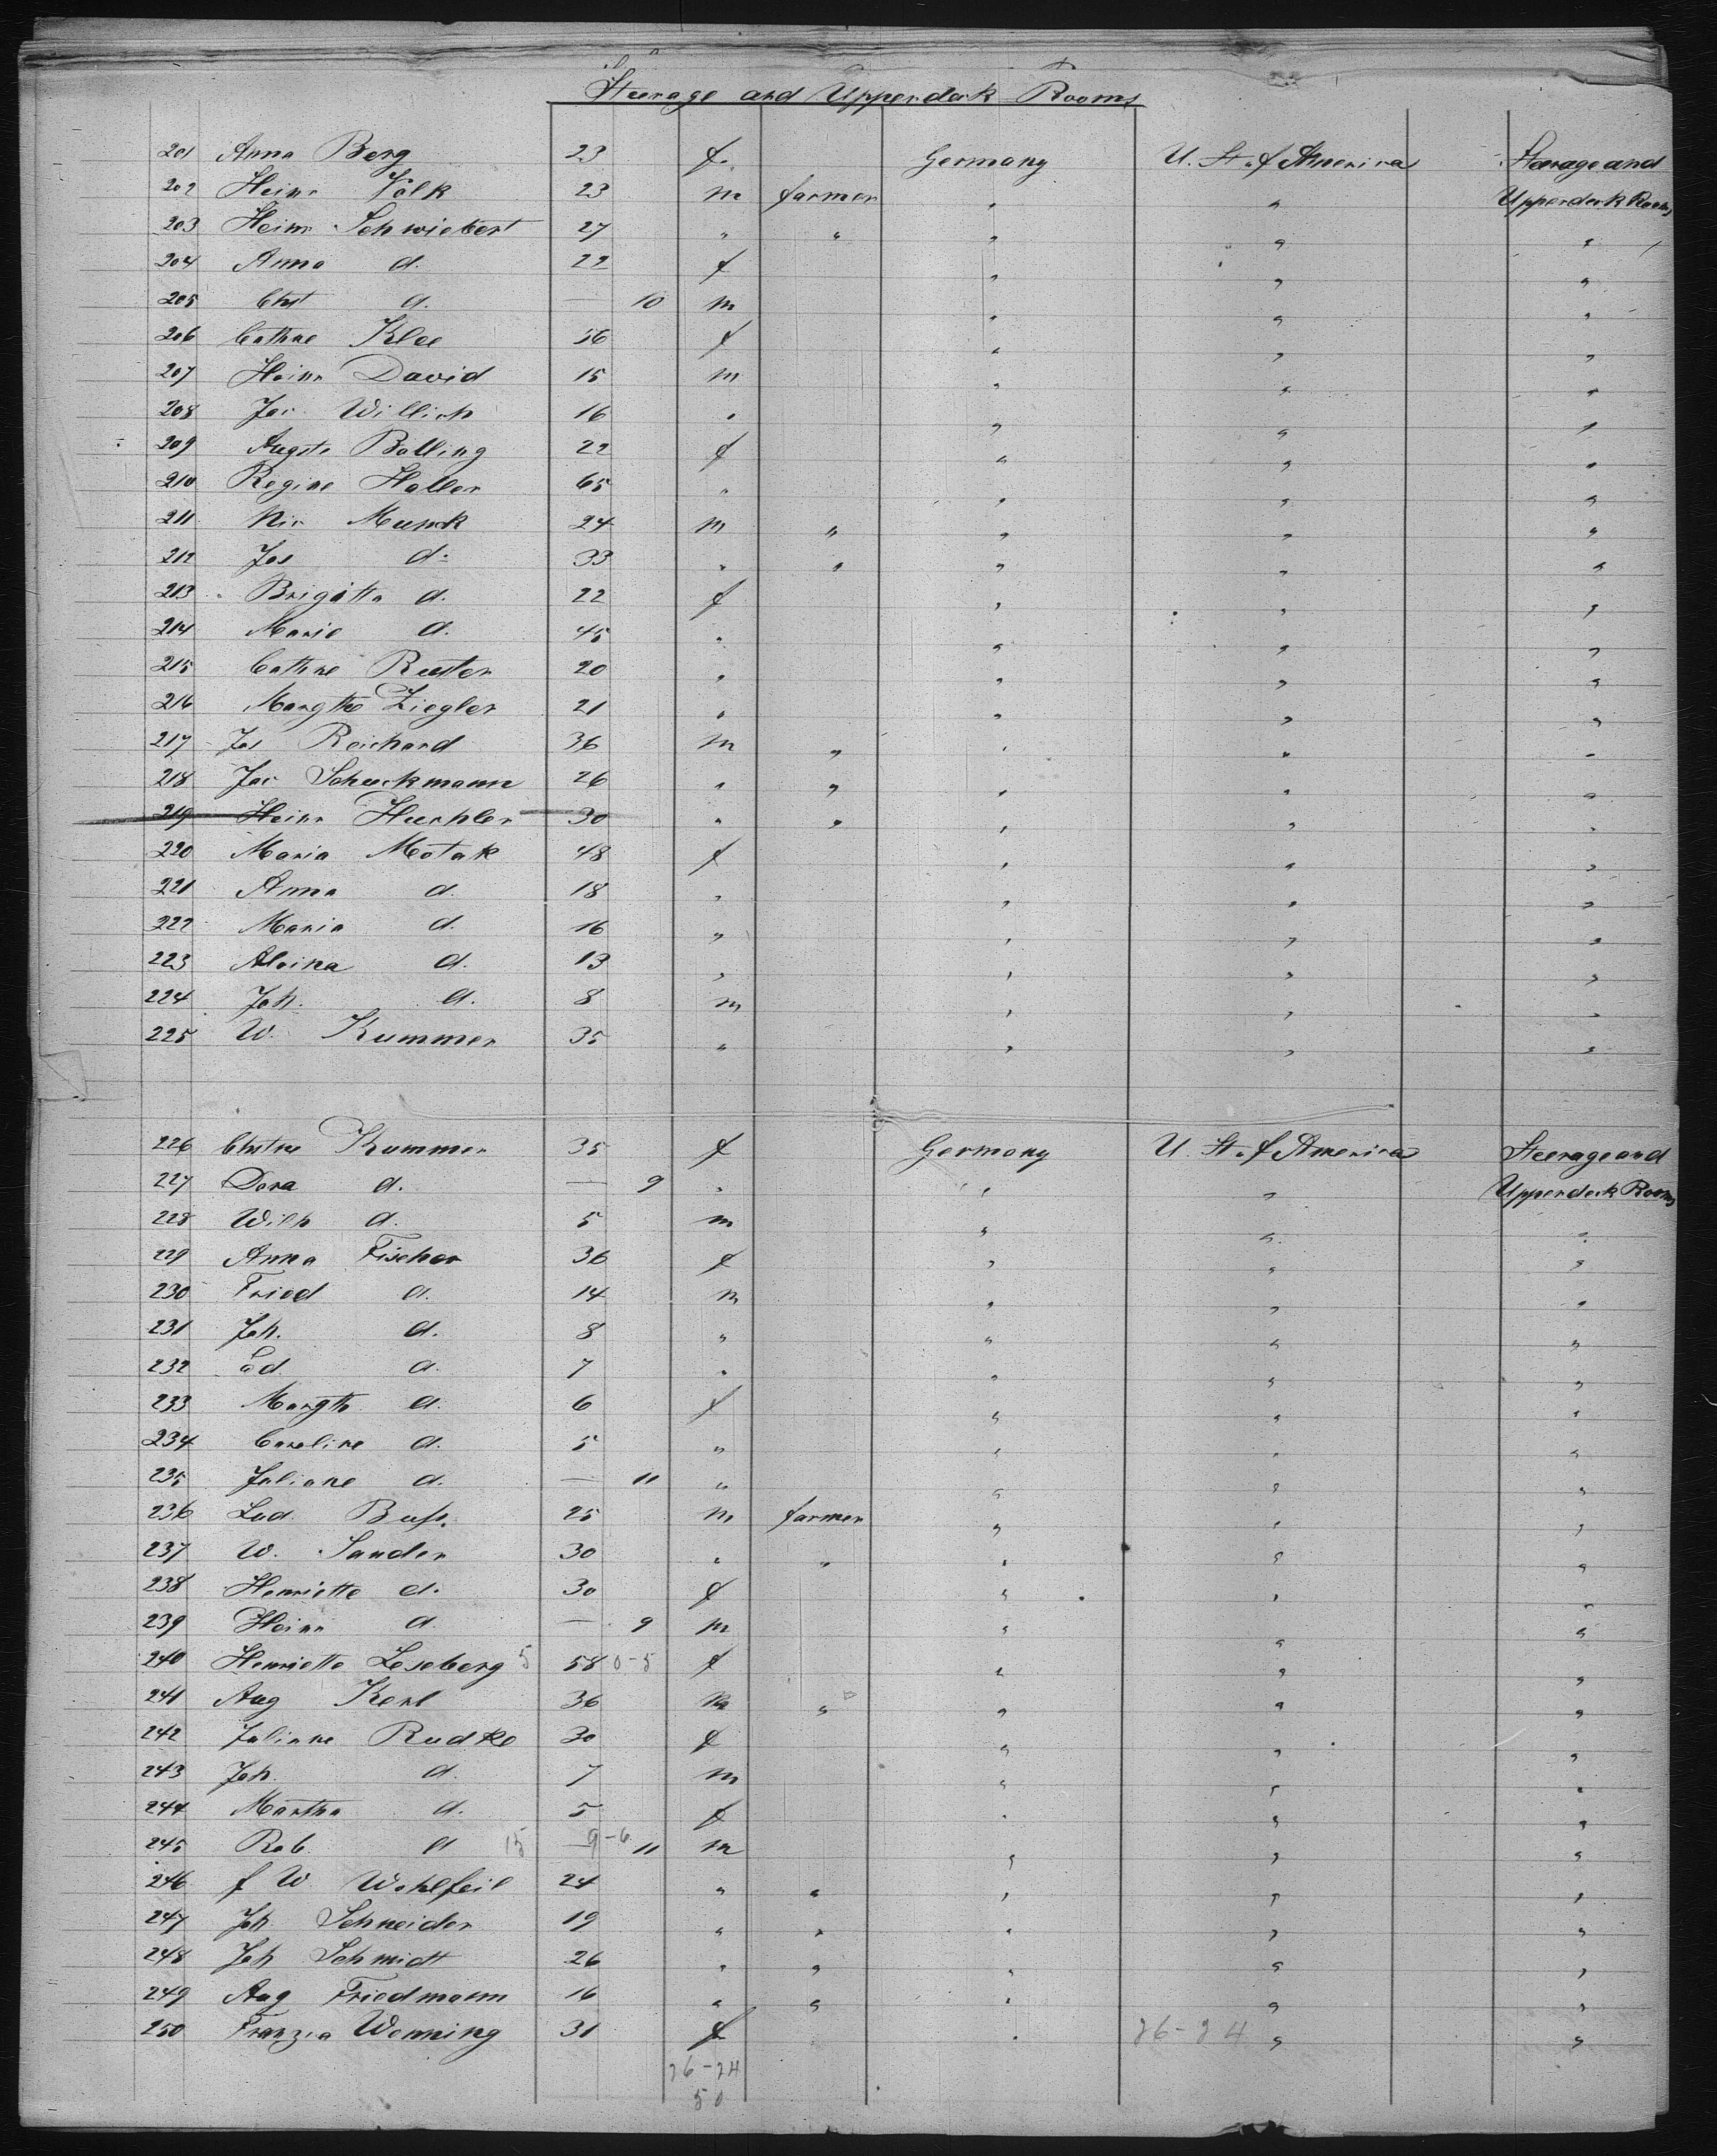 Steerage and Upperdeck Rooms
201 Anna Berg 23 f. Germany U. St. of America Steerage and
202 Heinr Volk 23 m farmer " " Upperdeck Rooms
203 Heinr Schwiebert 27 " " " " "
204 Anna d. 22 f " " "
205 Chst d. — 10 m " " "
206 Cathne Klee 56 f " " "
207 Heinr David 15 m " " "
208 Jac Willich 16 " " " "
209 Augste Bolling 22 f " " "
210 Regine Haller 65 " " " "
211 Nic Munck 24 m " " " "
212 Jos d. 33 " " " " "
213 Brigitta d. 22 f " " "
214 Marie d. 45 " " " "
215 Cathne Reuter 20 " " " "
216 Margthe Ziegler 21 " " " "
217 Jos Reichard 36 m " " " "
218 Jac Schuckmann 26 " " " " "
219 Heinr Huchler 30 " " " " "
220 Maria Motak 48 f " " "
221 Anna d. 18 " " " "
222 Maria d. 16 " " " "
223 Alvina d. 13 " " " "
224 Joh. d. 8 m " " "
225 W. Kummer 35 " " " "
226 Chstne Kummer 35 f Germany U. St. of America Steerage and
227 Dora d. — 9 " " " Upperdeck Rooms
228 Wilh d. 5 m " " "
229 Anna Fischer 36 f " " "
230 Fried d. 14 m " " "
231 Joh. d. 8 " " " "
232 Ed d. 7 " " " "
233 Margth d. 6 f " " "
234 Caroline d. 5 " " " "
235 Juliane d. — 11 " " " "
236 Lud. Buss. 25 m farmer " " "
237 W. Sander 30 " " " " "
238 Henriette d. 30 f " " "
239 Heinr d. — 9 m " " "
240 Henriette Leseberg 5 58 0-5 f " " "
241 Aug Kerl 36 m " " " "
242 Juliane Rudke 30 f " " "
243 Joh. d. 7 m " " "
244 Martha d. 5 f " " "
245 Rob. d 15 — 9-6 11 m " " "
246 f W. Wohlfeil 24 " " " " "
247 Joh. Schneider 19 " " " " "
248 Joh Schmidt 26 " " " " "
249 Aug Friedmann 16 " " " " "
250 Franzca Wenning 31 f " 26-24 " "
26-24
50